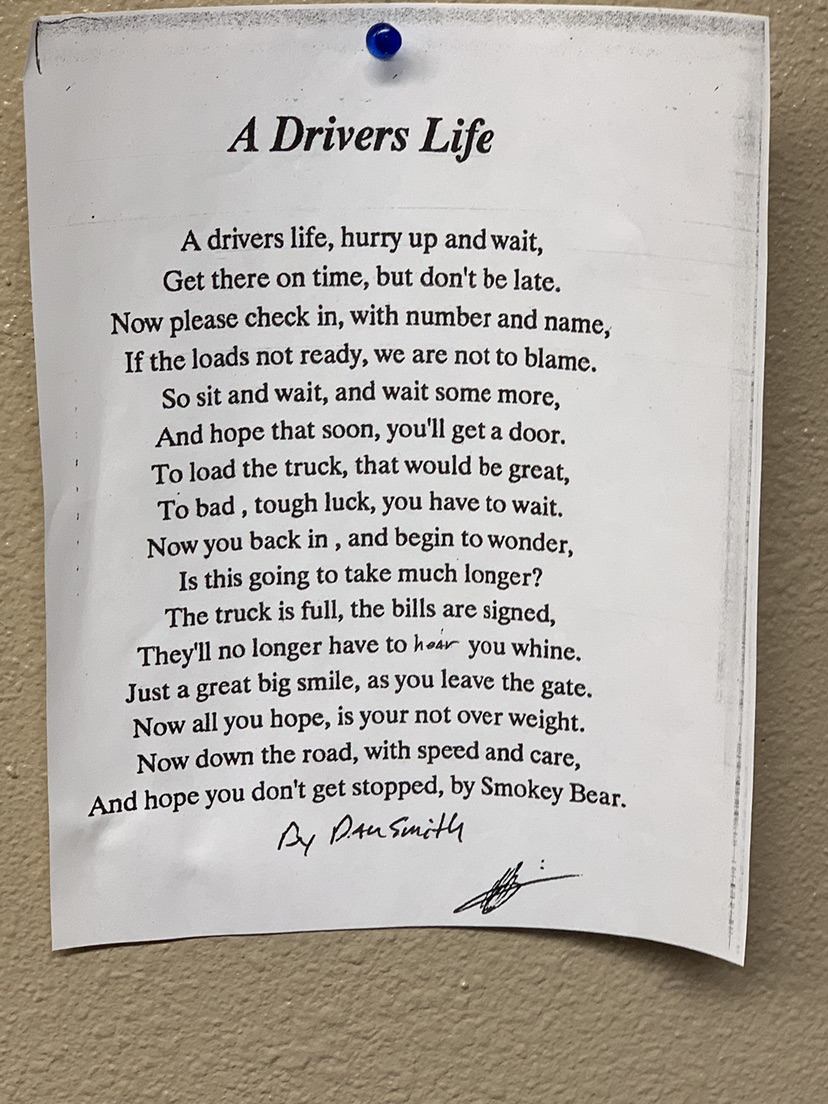 A Drivers Life
A drivers life, hurry up and wait,
Get there on time, but don't be late.
Now please check in, with number and name,
If the loads not ready, we are not to blame.
So sit and wait, and wait some more,
And hope that soon, you'll get a door.
To load the truck, that would be great,
To bad , tough luck, you have to wait.
Now you back in , and begin to wonder,
Is this going to take much longer?
The truck is full, the bills are signed,
They'll no longer have to hear you whine.
Just a great big smile, as you leave the gate.
Now all you hope, is your not over weight.
Now down the road, with speed and care,
And hope you don't get stopped, by Smokey Bear.
By Dan Smith